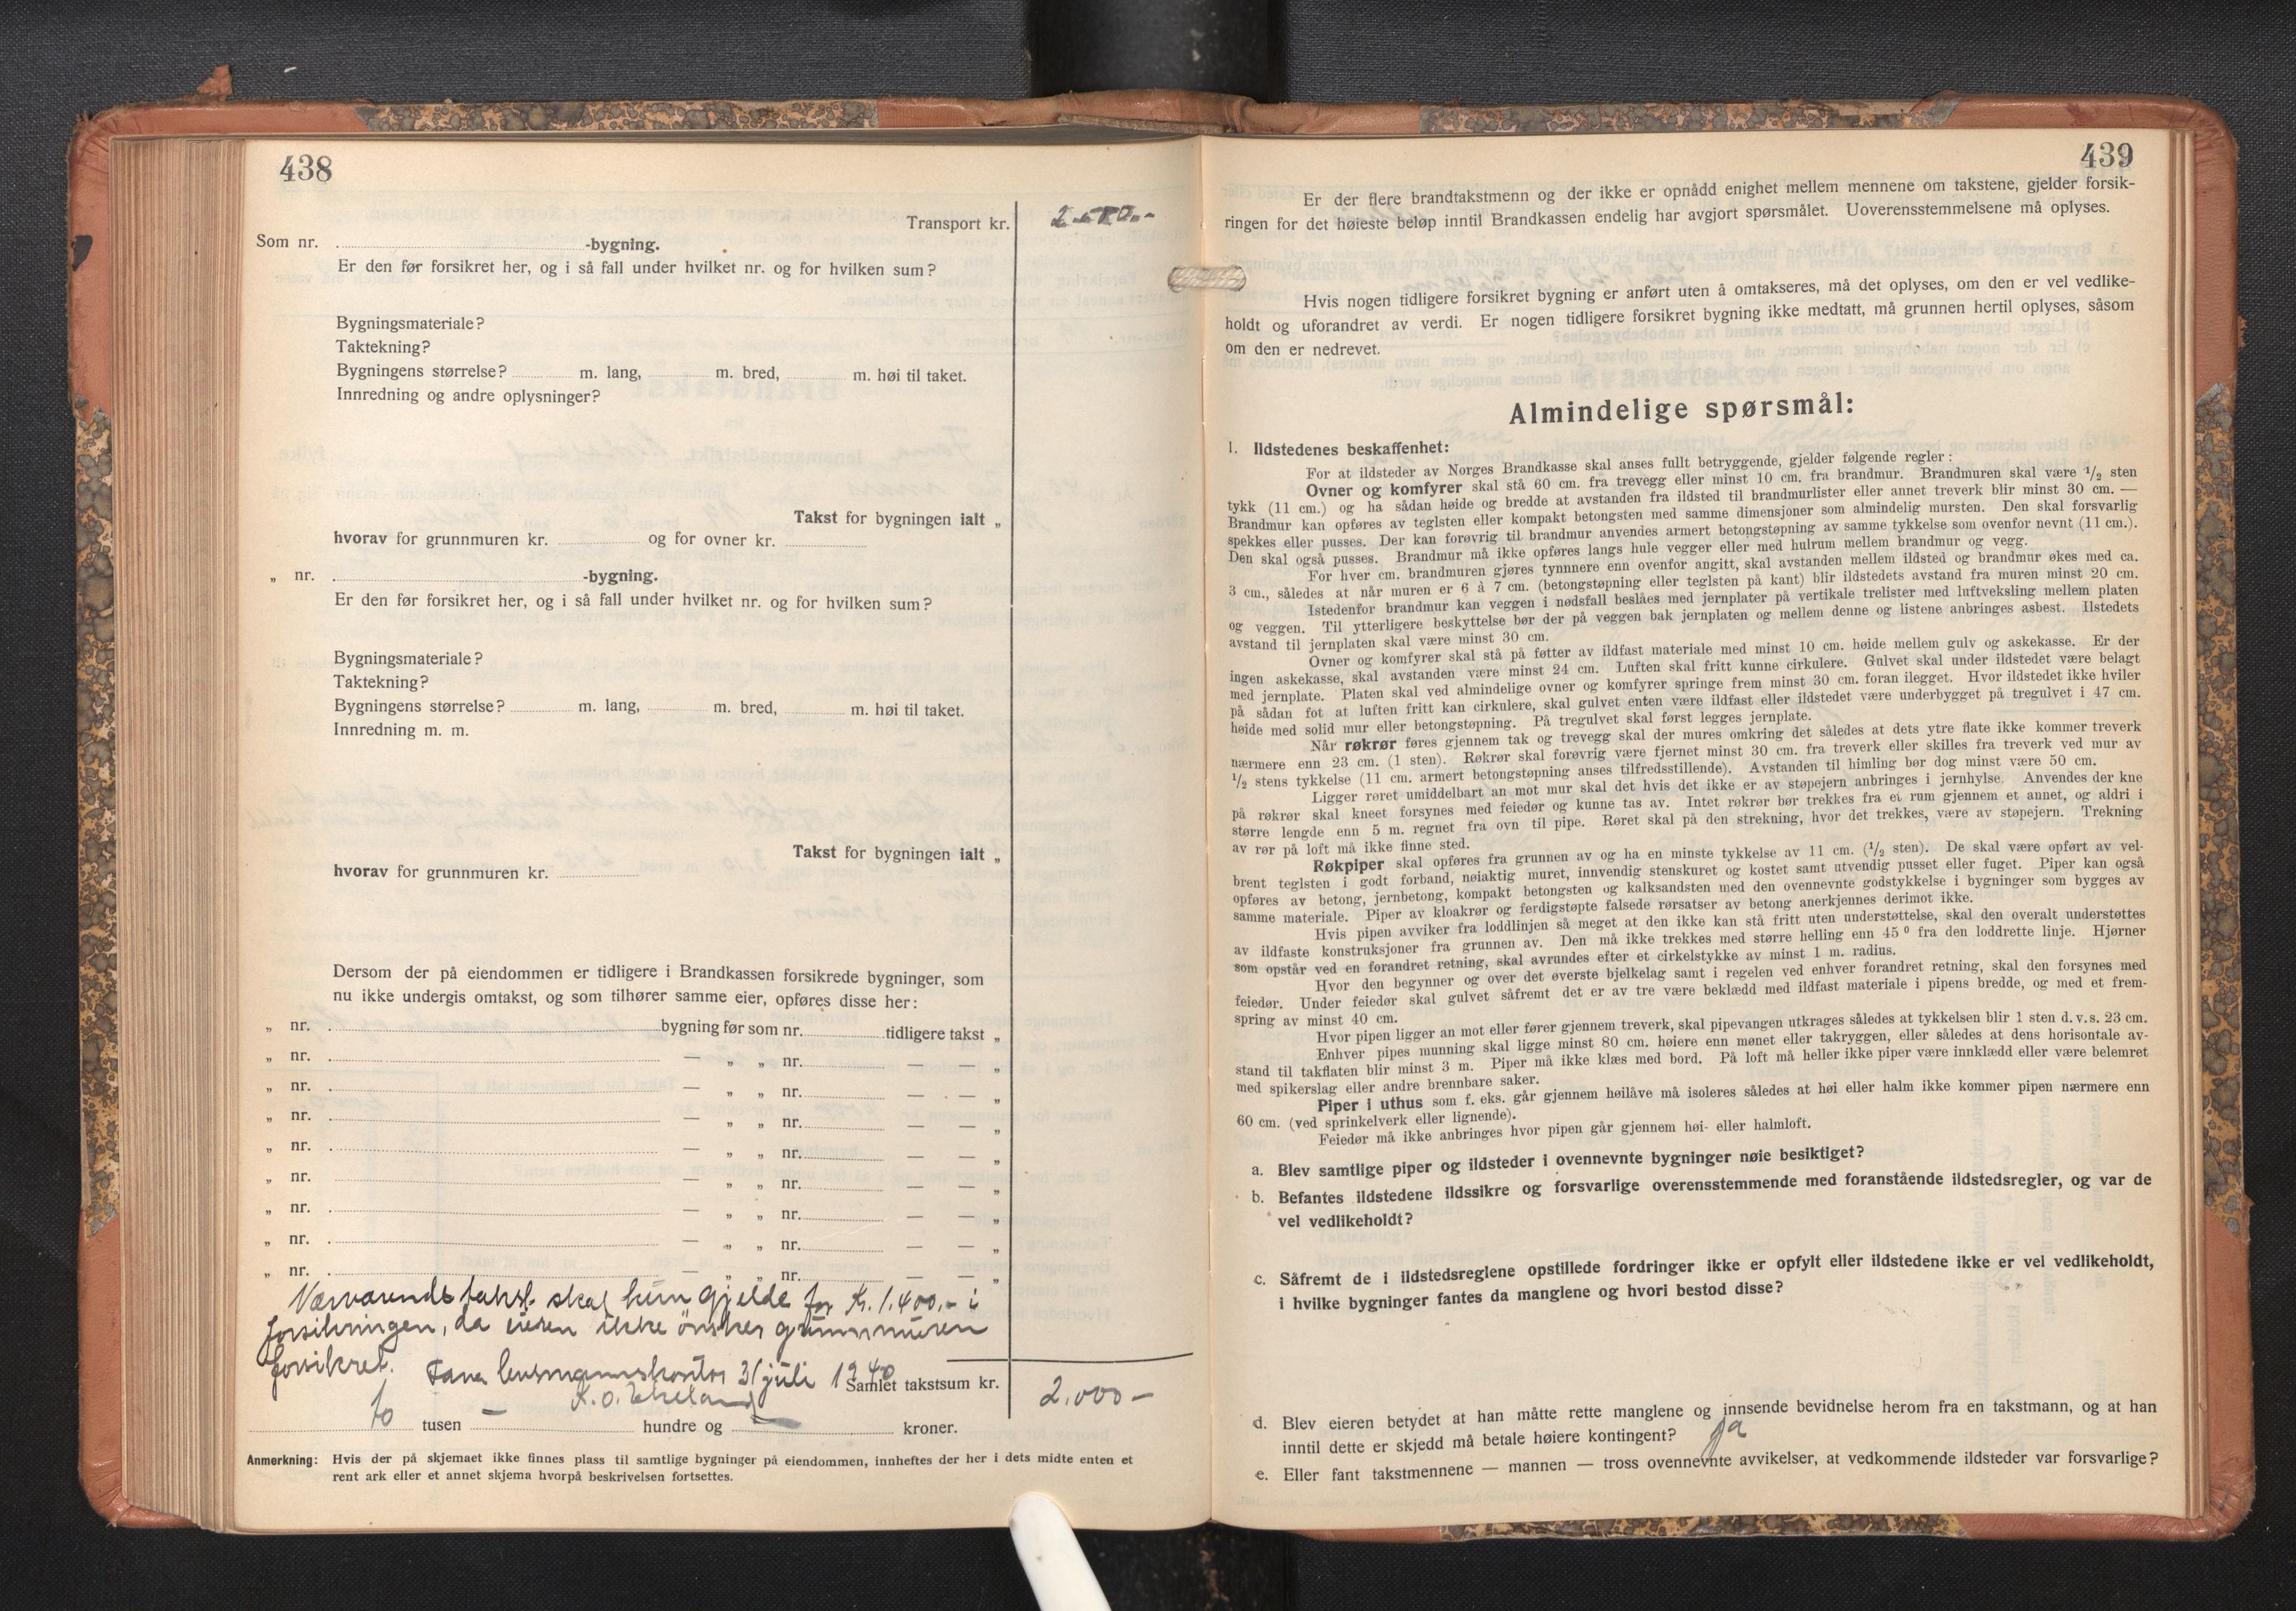 438
Transport kr.
Som nr. -bygning.
Er den før forsikret her, og i så fall under hvilket nr. og for hvilken sum?
Bygningsmateriale?
Taktekning?
Bygningens størrelse? m. lang, m. bred, m. høi til taket.
Innredning og andre oplysninger?
Takst for bygningen ialt „
hvorav for grunnmuren kr. og for ovner kr.
„ nr. -bygning.
Er den før forsikret her, og i så fall under hvilket nr. og for hvilken sum?
Bygningsmateriale?
Taktekning?
Bygningens størrelse? m. lang, m. bred, m. høi til taket.
Innredning m. m.
Takst for bygningen ialt „
hvorav for grunnmuren kr.
Dersom der på eiendommen er tidligere i Brandkassen forsikrede bygninger, som
nu ikke undergis omtakst, og som tilhører samme eier, opføres disse her:
„ nr. bygning før som nr. tidligere takst „
„ nr. — „ „ nr. — — „
„ nr. — „ „ nr. — — „
„ nr. — „ „ nr. — — „
„ nr. — „ „ nr. — — „
„ nr. — „ „ nr. — — „
„ nr. — „ „ nr. — — „
„ nr. — „ „ nr. — — „
„ nr. — „ „ nr. — — „
Nærværende takst skal kun gjelde for Kr. 1.400,- i
forsikringen, da eieren ikke ønsker grunnmuren
forsikret. Fana lensmannskontor 31 juli 1940
Samlet takstsum kr. 2.000 —
to tusen — hundre og — kroner.
Anmerkning: Hvis der på skjemaet ikke finnes plass til samtlige bygninger på eiendommen, innheftes der her i dets midte enten et
rent ark eller et annet skjema hvorpå beskrivelsen fortsettes.
439
Er der flere brandtakstmenn og der ikke er opnådd enighet mellem mennene om takstene, gjelder forsik-
ringen for det høieste beløp inntil Brandkassen endelig har avgjort spørsmålet. Uoverensstemmelsene må oplyses.
Hvis nogen tidligere forsikret bygning er anført uten å omtakseres, må det oplyses, om den er vel vedlike-
holdt og uforandret av verdi. Er nogen tidligere forsikret bygning ikke medtatt, må grunnen hertil oplyses, såsom
om den er nedrevet.
Almindelige spørsmål:
1. Ildstedenes beskaffenhet:
For at ildsteder av Norges Brandkasse skal anses fullt betryggende, gjelder følgende regler:
Ovner og komfyrer skal stå 60 cm. fra trevegg eller minst 10 cm. fra brandmur. Brandmuren skal være 1/2 sten
tykk (11 cm.) og ha sådan høide og bredde at avstanden fra ildsted til brandmurlister eller annet treverk blir minst 30 cm. —
Brandmur kan opføres av teglsten eller kompakt betongsten med samme dimensjoner som almindelig mursten. Den skal forsvarlig
spekkes eller pusses. Der kan forøvrig til brandmur anvendes armert betongstøpning av samme tykkelse som ovenfor nevnt (11 cm.).
Den skal også pusses. Brandmur må ikke opføres langs hule vegger eller med hulrum mellem brandmur og vegg.
For hver cm. brandmuren gjøres tynnnere enn ovenfor angitt, skal avstanden mellem ildsted og brandmur økes med ca.
3 cm., således at når muren er 6 à 7 cm. (betongstøpning eller teglsten på kant) blir ildstedets avstand fra muren minst 20 cm.
Istedenfor brandmur kan veggen i nødsfall beslåes med jernplater på vertikale trelister med luftveksling mellem platen
og veggen. Til ytterligere beskyttelse bør der på veggen bak jernplaten og mellem denne og listene anbringes asbest. Ilstedets
avstand til jernplaten skal være minst 30 cm.
Ovner og komfyrer skal stå på føtter av ildfast materiale med minst 10 cm. høide mellem gulv og askekasse. Er der
ingen askekasse, skal avstanden være minst 24 cm. Luften skal fritt kunne cirkulere. Gulvet skal under ildstedet være belagt
med jernplate. Platen skal ved almindelige ovner og komfyrer springe frem minst 30 cm. foran ilegget. Hvor ildstedet ikke hviler
på sådan fot at luften fritt kan cirkulere, skal gulvet enten være ildfast eller ildstedet være underbygget på tregulvet i 47 cm.
høide med solid mur eller betongstøpning. På tregulvet skal først legges jernplate.
Når røkrør føres gjennem tak og trevegg skal der mures omkring det således at dets ytre flate ikke kommer treverk
nærmere enn 23 cm. (1 sten). Røkrør skal forøvrig være fjernet minst 30 cm. fra treverk eller skilles fra treverk ved mur av
1/2 stens tykkelse (11 cm. armert betongstøpning anses tilfredsstillende). Avstanden til himling bør dog minst være 50 cm.
Ligger røret umiddelbart an mot mur skal det hvis det ikke er av støpejern anbringes i jernhylse. Anvendes der kne
på røkrør skal kneet forsynes med feiedør og kunne tas av. Intet røkrør bør trekkes fra ei rum gjennem et annet, og aldri i
større lengde enn 5 m. regnet fra ovn til pipe. Røret skal på den strekning, hvor det trekkes, være av støpejern. Trekning
av rør på loft må ikke finne sted.
Røkpiper skal opføres fra grunnen av og ha en minste tykkelse av 11 cm. (1/2 sten). De skal være opført av vel-
brent teglsten i godt forband, nøiaktig muret, innvendig stenskuret og kostet samt utvendig pusset eller fuget. Piper kan også
opføres av betong, jernbetong, kompakt betongsten og kalksandsten med den ovennevnte godstykkelse i bygninger som bygges av
samme materiale. Piper av kloakrør og ferdigstøpte falsede rørsatser av betong anerkjennes derimot ikke.
Hvis pipen avviker fra loddlinjen så meget at den ikke kan stå fritt uten understøttelse, skal den overalt understøttes
av ildfaste konstruksjoner fra grunnen av. Den må ikke trekkes med større helling enn 45° fra den loddrette linje. Hjørner
som opstår ved en forandret retning, skal avrundes efter et cirkelstykke av minst 1 m. radius.
Hvor den begynner og over det øverste bjelkelag samt i regelen ved enhver forandret retning, skal den forsynes med
feiedør. Under feiedør skal gulvet såfremt det er av tre være beklædd med ildfast materiale i pipens bredde, og med et frem-
spring av minst 40 cm.
Hvor pipen ligger an mot eller fører gjennem treverk, skal pipevangen utkrages således at tykkelsen blir 1 sten d. v. s. 23 cm.
Enhver pipes munning skal ligge minst 80 cm. høiere enn mønet eller takryggen, eller således at dens horisontale av-
stand til takflaten blir minst 3 m. Piper må ikke klæs med bord. På loft må heller ikke piper være innklædd eller være belemret
med spikerslag eller andre brennbare saker.
Piper i uthus som f. eks. går gjennem høilåve må isoleres således at høi eller halm ikke kommer pipen nærmere enn
60 cm. (ved sprinkelverk eller lignende).
Feiedør må ikke anbringes hvor pipen går gjennem høi- eller halmloft.
a. Blev samtlige piper og ildsteder i ovennevnte bygninger nøie besiktiget?
b. Befantes ildstedene ildssikre og forsvarlige overensstemmende med foranstående ildstedsregler, og var de
vel vedlikeholdt?
c. Såfremt de i ildstedsreglene opstillede fordringer ikke er opfylt eller ildstedene ikke er vel vedlikeholdt,
i hvilke bygninger fantes da manglene og hvori bestod disse?
d. Blev eieren betydet at han måtte rette manglene og innsende bevidnelse herom fra en takstmann, og at han
inntil dette er skjedd må betale høiere kontingent? Ja
e. Eller fant takstmennene — mannen — tross ovennevnte avvikelser, at vedkommende ildsteder var forsvarlige?